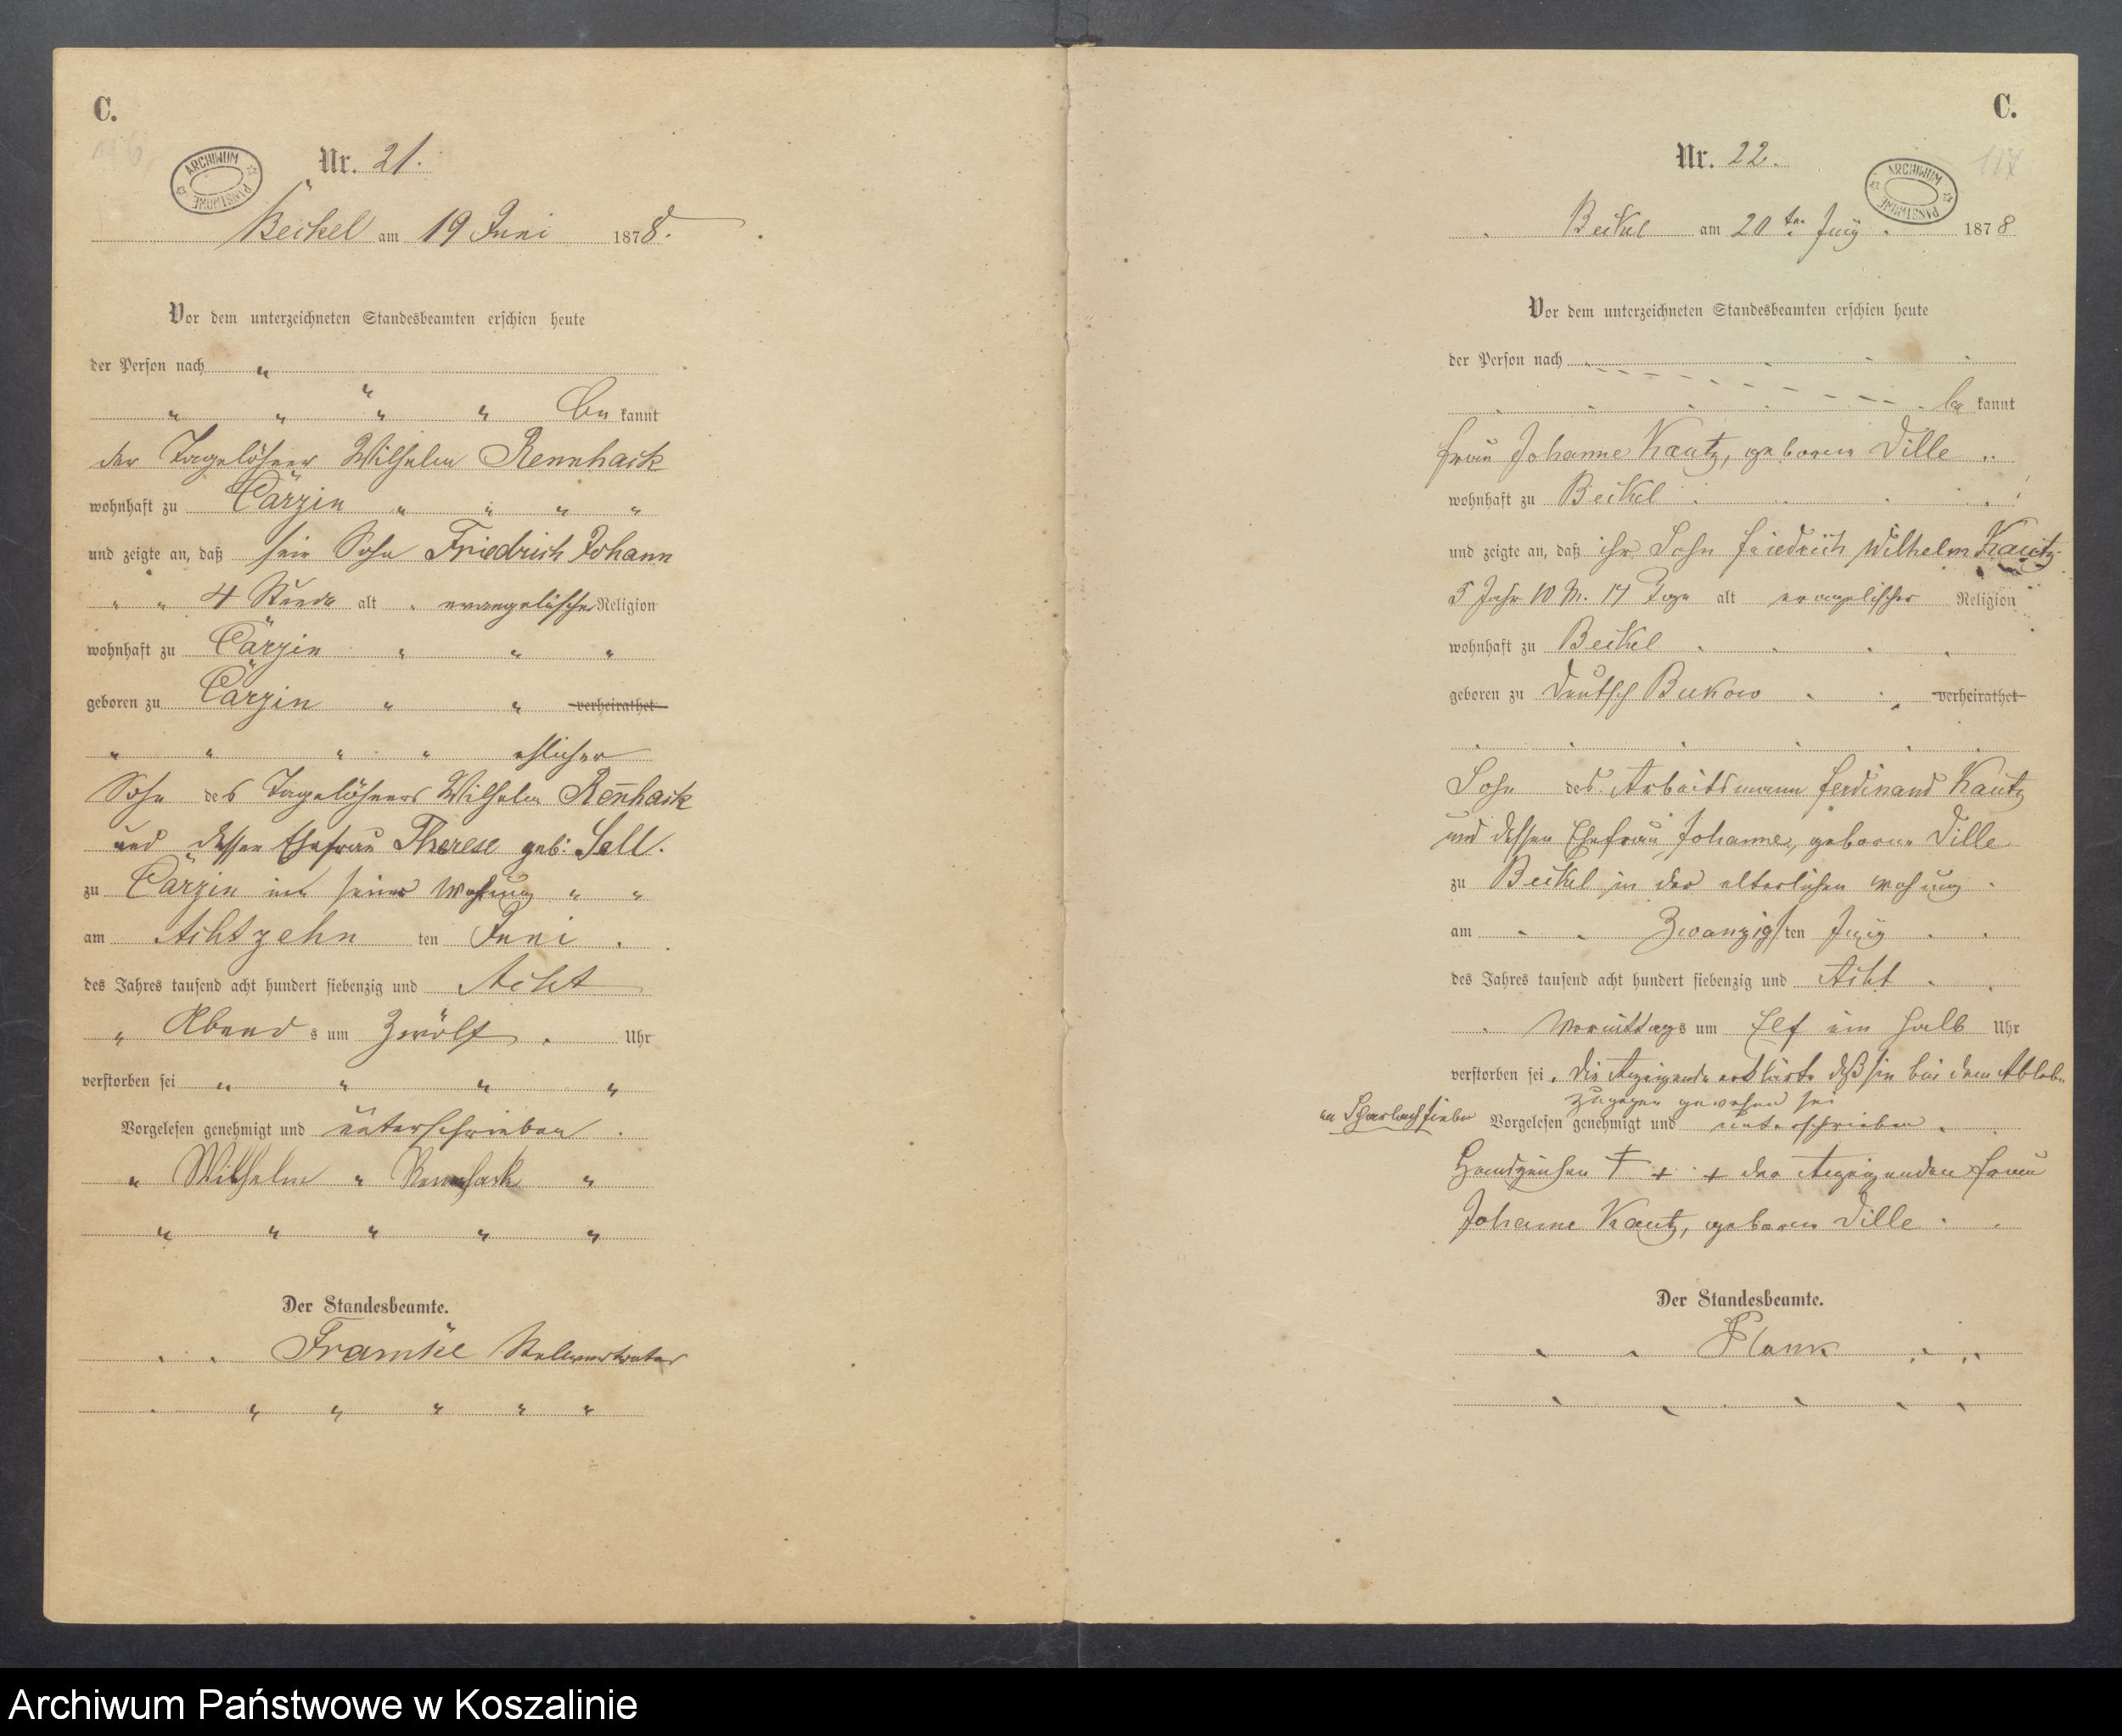 C.
Nr. 21.
ARCHIWUM PAŃSTWOWE
Beckel am 19 Juni 1878.
Vor dem unterzeichneten Standesbeamten erschien heute
der Person nach
be kannt
der Tagelöhner Wilhelm Rennhack
wohnhaft zu Cärzin
und zeigte an, daß sein Sohn Friedrich Johann
4 Stunde alt evangelischer Religion
wohnhaft zu Cärzin
geboren zu Cärzin verheirathet
ehlicher
Sohn des Tagelöhners Wilhelm Ren̄hack
und dessen Ehefrau Therese geb: Sell.
zu Cärzin in seiner Wohnung
am Achtzehn ten Juni
des Jahres tausend acht hundert siebenzig und Acht
Abend s um Zwölf Uhr
verstorben sei
Vorgelesen genehmigt und unterschrieben
Wilhelm Rennhack
Der Standesbeamte.
Framke Stelvertreter
C.
117
Nr. 22.
ARCHIWUM PAŃSTWOWE
Beckel am 20ten Juny 1878
Vor dem unterzeichneten Standesbeamten erschien heute
der Person nach
be kannt
Frau Johanne Kautz, geboren Dille
wohnhaft zu Beckel
und zeigte an, daß ihr Sohn Friedrich Wilhelm Kautz
5 Jahr 10 M. 14 Tage alt evangelischer Religion
wohnhaft zu Beckel
geboren zu Deutsch Bukow verheirathet
Sohn des Arbeitsmann Ferdinand Kautz
und dessen Ehefrau Johanne, geborne Dille
zu Beckel in der elterlichen Wohnung
am Zwanzigsten Juny
des Jahres tausend acht hundert siebenzig und Acht
Vormittags um Elf ein halb Uhr
verstorben sei. Die Anzeigende erklärte daß sie bei dem Ableben
zugegen gewesen sei
an Scharlachfieber Vorgelesen genehmigt und unterschrieben
Handzeichen + + + der Anzeigenden Frau
Johanne Kautz, geboren Dille
Der Standesbeamte.
Plank
Archiwum Państwowe w Koszalinie